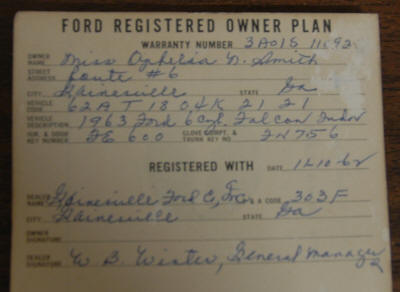 FORD REGISTERED OWNER PLAN
WARRANTY NUMBER 3A01S 111692
OWNER NAME Miss Ophelia N. Smith
STREET ADDRESS Route #6
CITY Gainesville STATE Ga
VEHICLE CODE 62A T 18 04K 21 21
VEHICLE DESCRIPTION 1963 Ford 6 Cyl. Falcon Tudor
IGN. & DOOR KEY NUMBER FE 600 GLOVE COMPT. & TRUNK KEY NO. 2N756
REGISTERED WITH DATE 12-10-62
DEALER NAME Gainesville Ford C, Inc. P & A CODE 303F
CITY Gainesville STATE Ga
OWNER SIGNATURE
DEALER SIGNATURE W. B. Wister, General Manager